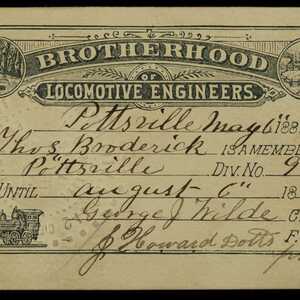 BROTHERHOOD
OF
LOCOMOTIVE ENGINEERS.
Pottsville May 6" 188
Thos Broderick IS A MEMB
Pottsville DIV. NO. 9
UNTIL August 6" 18
George J Wilde C
J Howard Dotts F.